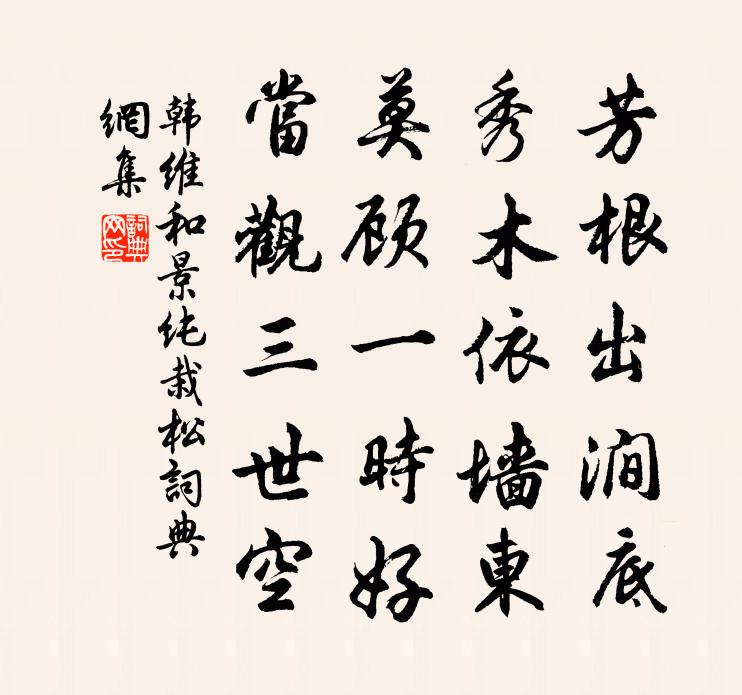 芳根出澗底
秀木依墻東
莫顾一時好
當觀三世空
韩维和景纯栽松詞典
網集
詞典網印